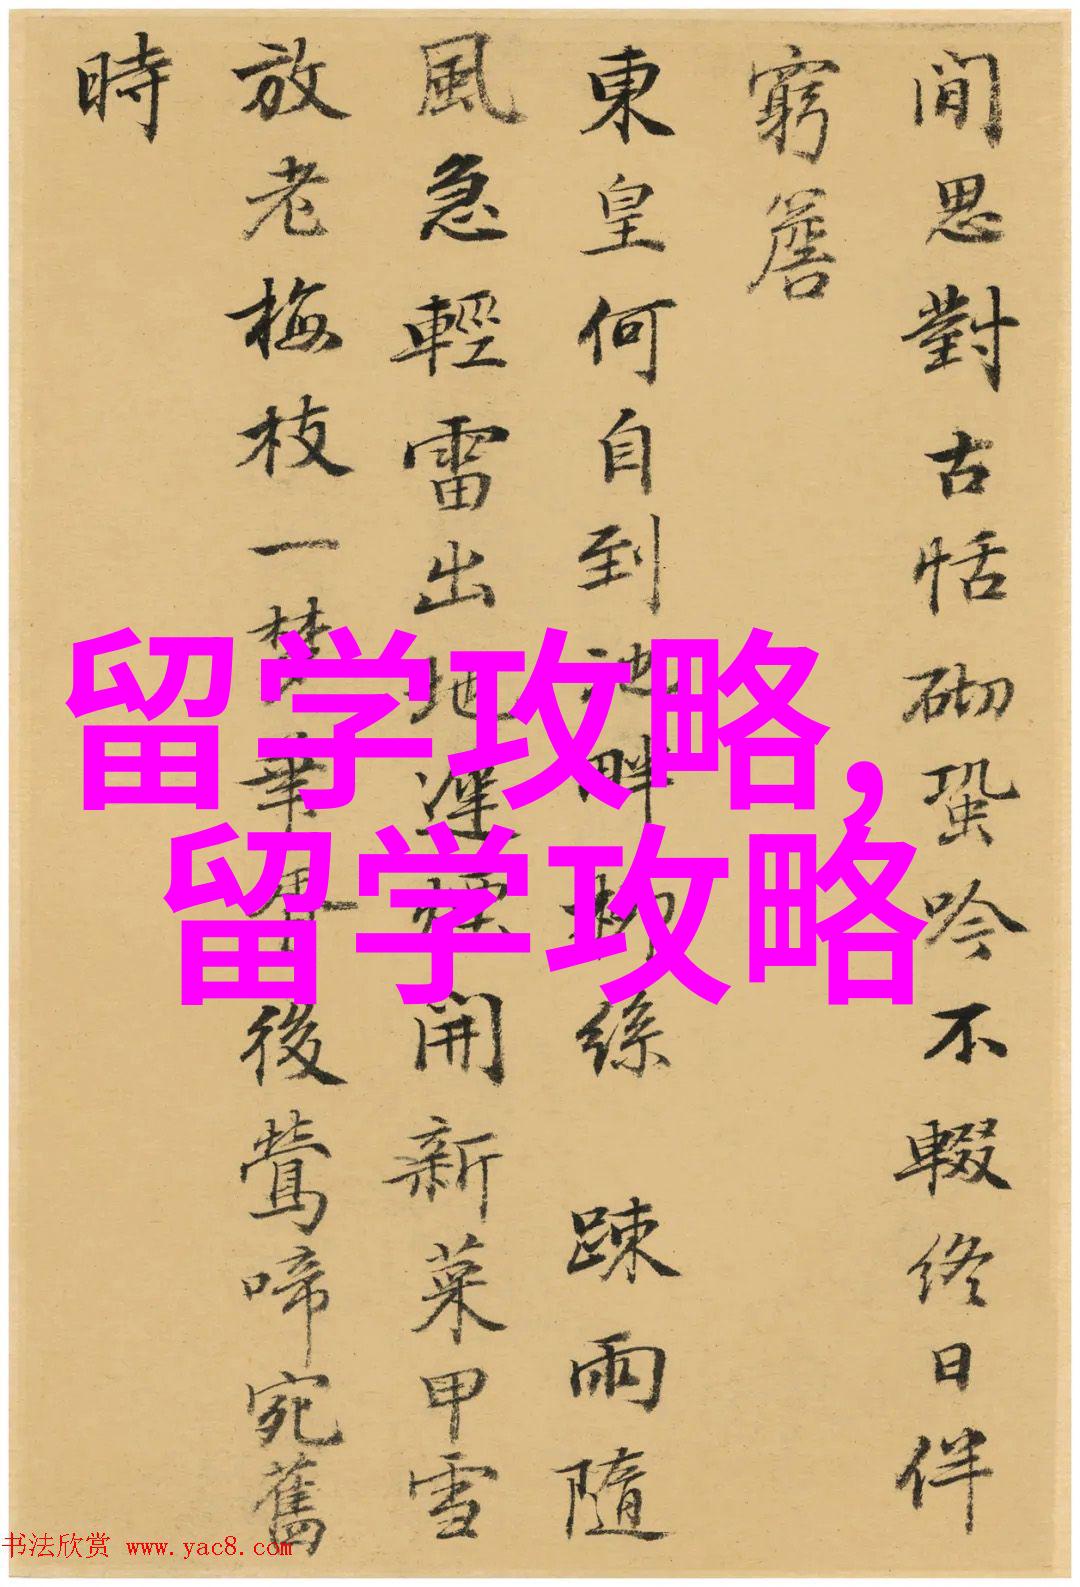 閒思對古恬砌蛩吟不輟終日伴
窮簷
東皇何自到池畔柳絲 踈雨隨
風急輕雷出地遲煙開新菜甲雪
放老梅枝一梦華胥後鶯啼宛舊
時
留学攻略,
留学攻略
书法欣赏 www.yac8.com